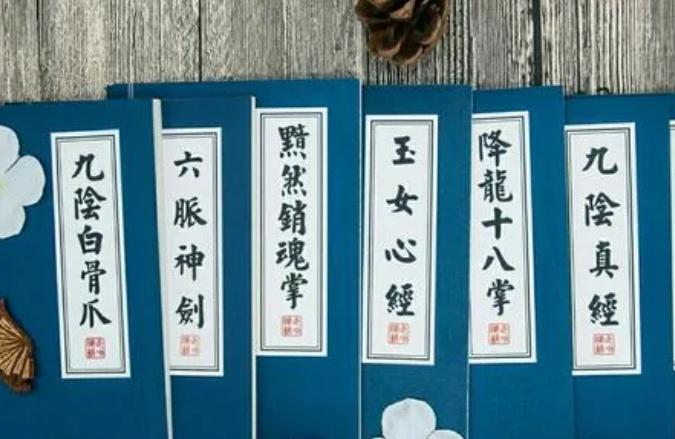 九陰白骨爪
六脈神劍
黯然銷魂掌
玉女心經
降龍十八掌
九陰真經